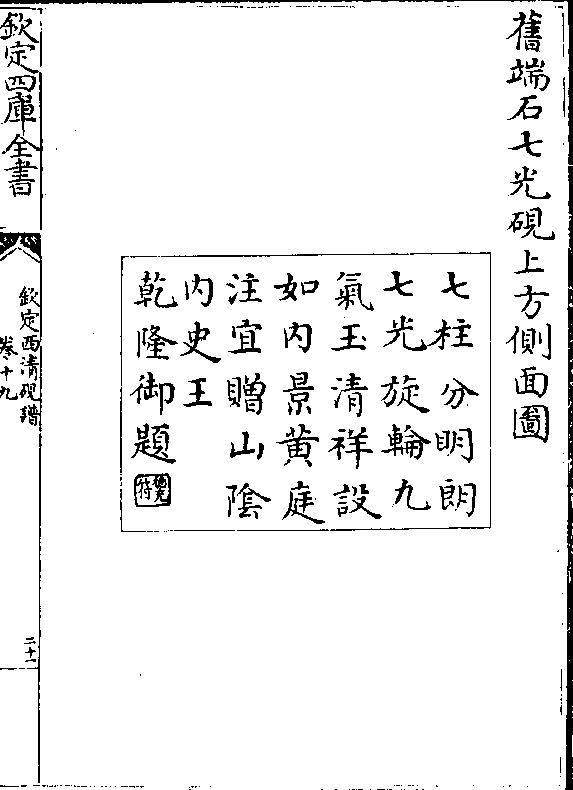 舊端石七光硯上方側面圖
七柱分明朗
七光旋輪九
氣玉清祥設
如内景黄庭
注宜贈山陰
内史王
乾隆御題
德充
符
欽定四庫全書
欽定西清硯譜
卷十九
二十一